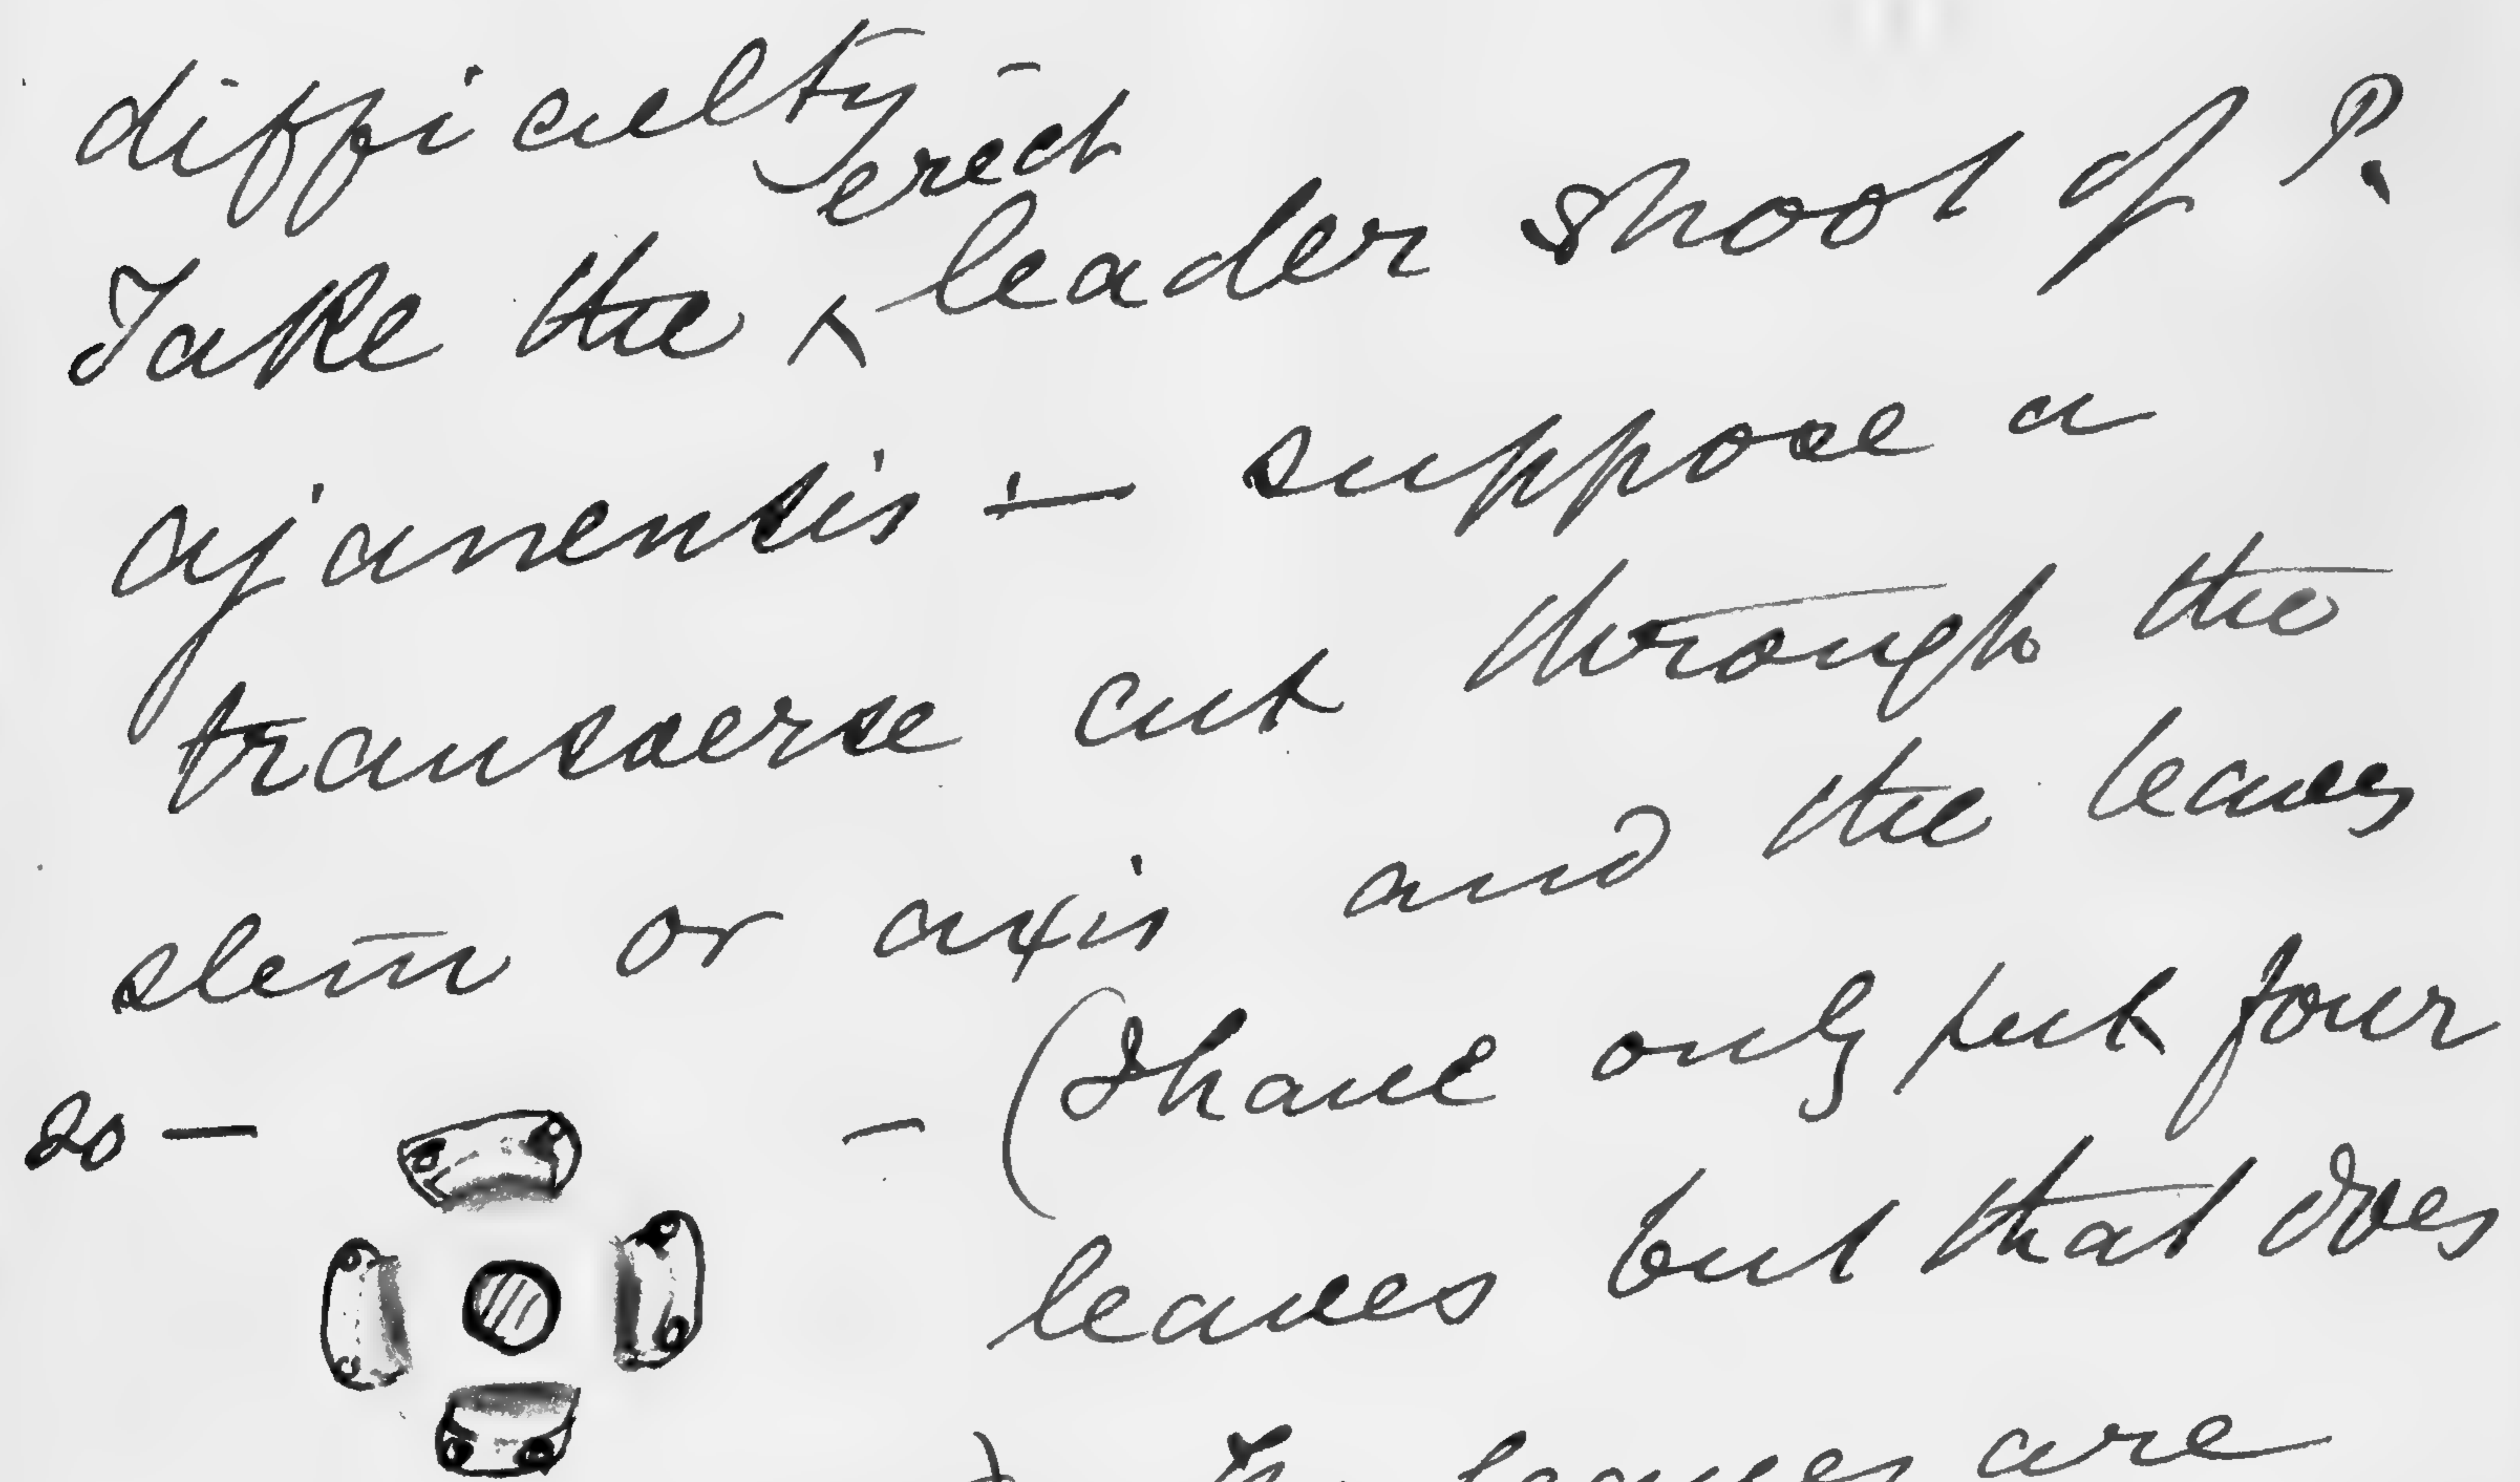 difficulty
erect
Take the ^ leader shoot of P.
ajanensis — suppose a
transverse cut through the
stem or axis and the leaves
so — — (I have only put four
leaves but that does
leaves are